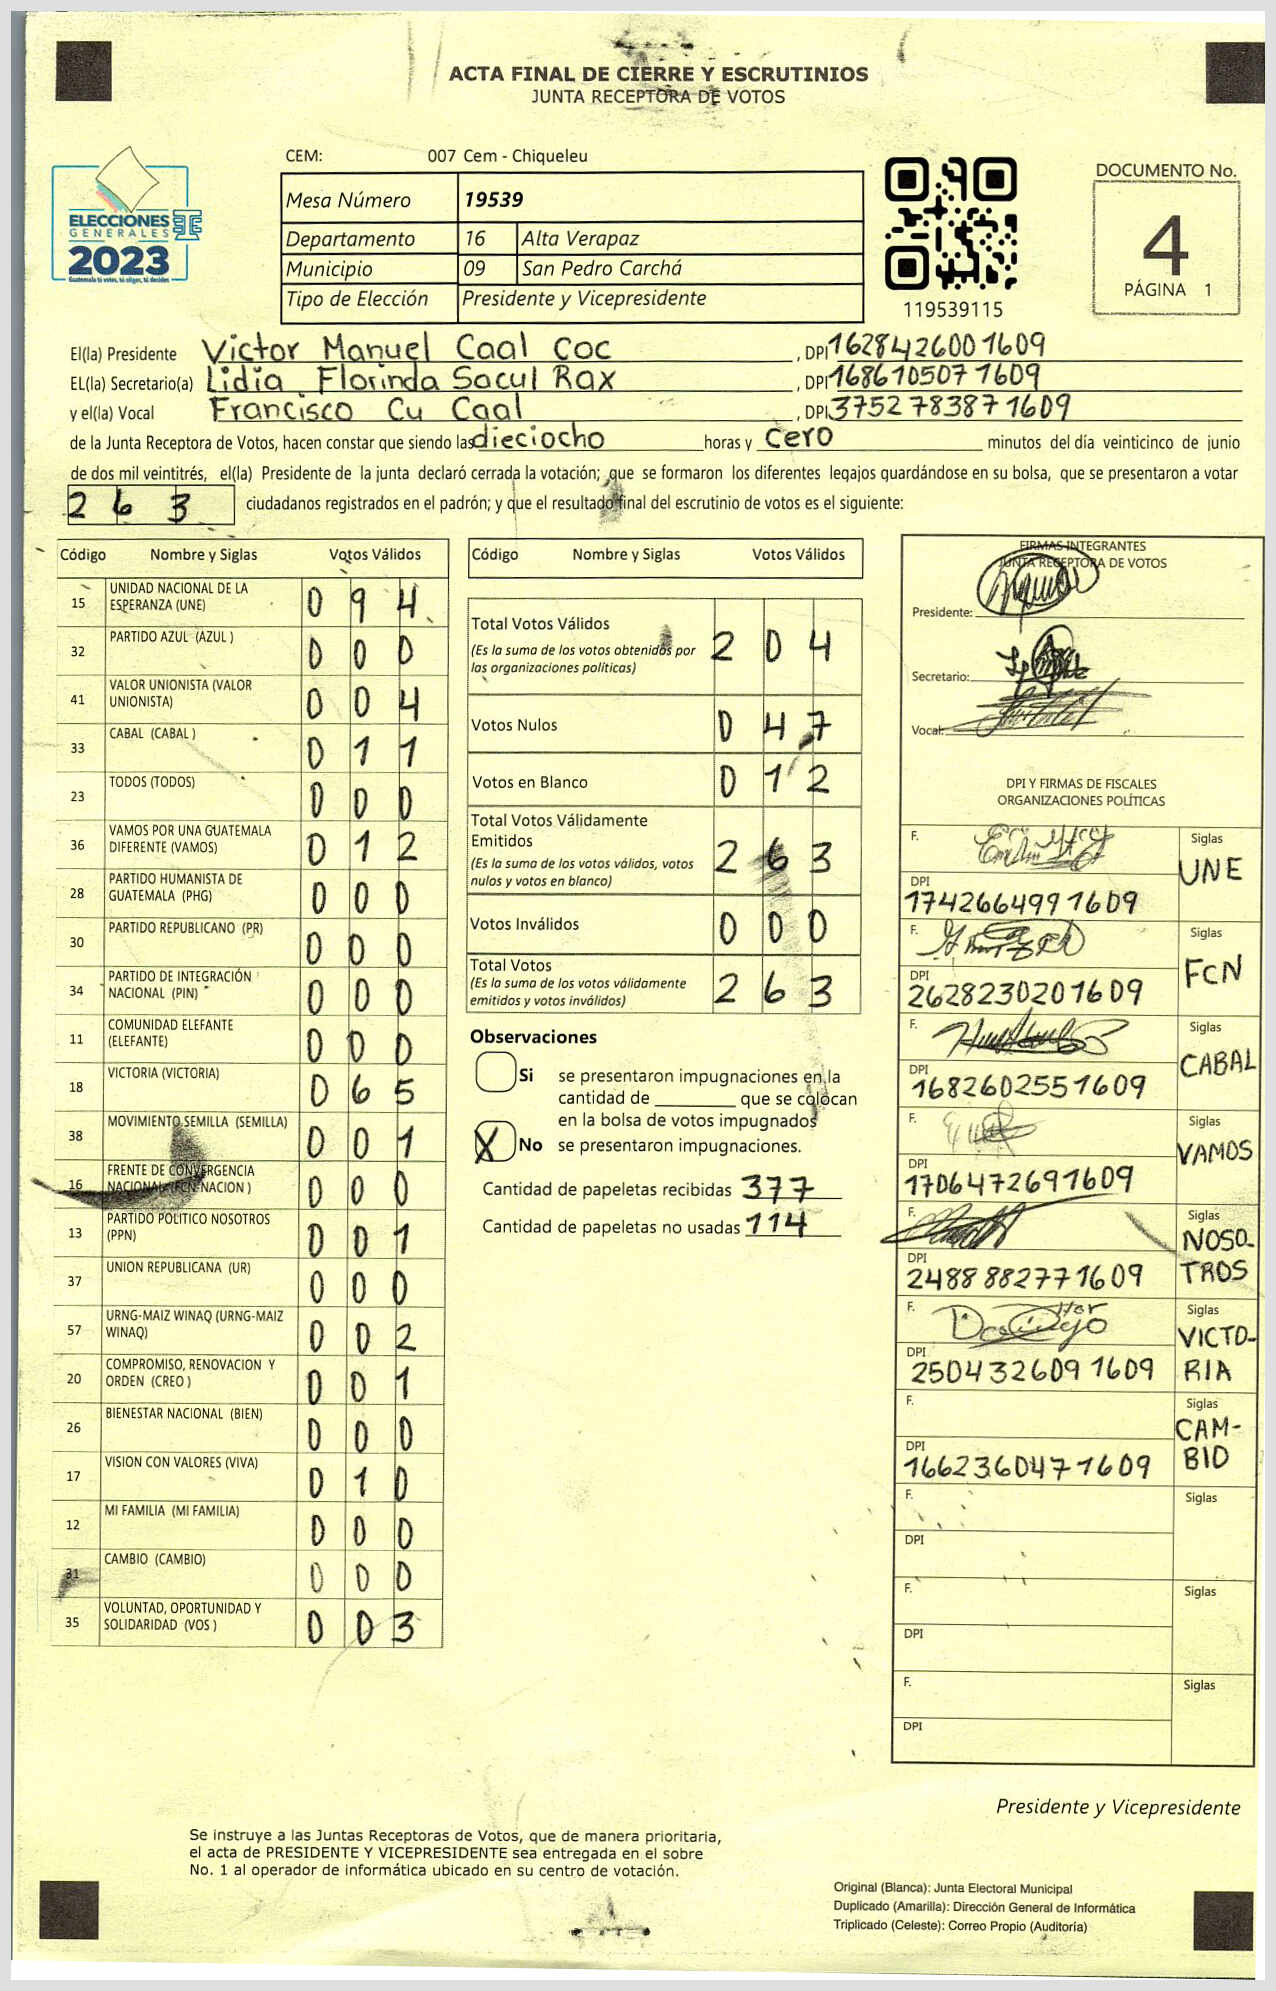 ACTA FINAL DE CIERRE Y ESCRUTINIOS
JUNTA RECEPTORA DE VOTOS
CEM: 007 Cem - Chiqueleu
ELECCIONES
GENERALES
2023
Guatemala tú votes, tú eliges, tú decides
Mesa Número 19539
Departamento 16 Alta Verapaz
Municipio 09 San Pedro Carchá
Tipo de Elección Presidente y Vicepresidente
119539115
DOCUMENTO No.
4
PÁGINA 1
El(la) Presidente Victor Manuel Caal Coc, DPI 1628426001609
EL(la) Secretario(a) Lidia Florinda Sacul Rax, DPI 1686105071609
y el(la) Vocal Francisco Cu Caal, DPI 3752783871609
de la Junta Receptora de Votos, hacen constar que siendo las dieciocho horas y cero minutos del día veinticinco de junio
de dos mil veintitrés, el(la) Presidente de la junta declaró cerrada la votación; que se formaron los diferentes legajos guardándose en su bolsa, que se presentaron a votar
263 ciudadanos registrados en el padrón; y que el resultado final del escrutinio de votos es el siguiente:
Código Nombre y Siglas Votos Válidos
15 UNIDAD NACIONAL DE LA ESPERANZA (UNE) 094
32 PARTIDO AZUL (AZUL ) 000
41 VALOR UNIONISTA (VALOR UNIONISTA) 004
33 CABAL (CABAL ) 011
23 TODOS (TODOS) 000
36 VAMOS POR UNA GUATEMALA DIFERENTE (VAMOS) 012
28 PARTIDO HUMANISTA DE GUATEMALA (PHG) 000
30 PARTIDO REPUBLICANO (PR) 000
34 PARTIDO DE INTEGRACIÓN NACIONAL (PIN) 000
11 COMUNIDAD ELEFANTE (ELEFANTE) 000
18 VICTORIA (VICTORIA) 065
38 MOVIMIENTO SEMILLA (SEMILLA) 001
16 FRENTE DE CONVERGENCIA NACIONAL (FCN-NACION ) 000
13 PARTIDO POLITICO NOSOTROS (PPN) 001
37 UNION REPUBLICANA (UR) 000
57 URNG-MAIZ WINAQ (URNG-MAIZ WINAQ) 002
20 COMPROMISO, RENOVACION Y ORDEN (CREO ) 001
26 BIENESTAR NACIONAL (BIEN) 000
17 VISION CON VALORES (VIVA) 010
12 MI FAMILIA (MI FAMILIA) 000
31 CAMBIO (CAMBIO) 000
35 VOLUNTAD, OPORTUNIDAD Y SOLIDARIDAD (VOS ) 003
Código Nombre y Siglas Votos Válidos
Total Votos Válidos 204
(Es la suma de los votos obtenidos por
las organizaciones políticas)
Votos Nulos 047
Votos en Blanco 012
Total Votos Válidamente
Emitidos 263
(Es la suma de los votos válidos, votos
nulos y votos en blanco)
Votos Inválidos 000
Total Votos 263
(Es la suma de los votos válidamente
emitidos y votos inválidos)
Observaciones
Si se presentaron impugnaciones en la
cantidad de ________ que se colocan
en la bolsa de votos impugnados
X No se presentaron impugnaciones.
Cantidad de papeletas recibidas 377
Cantidad de papeletas no usadas 114
FIRMAS INTEGRANTES
JUNTA RECEPTORA DE VOTOS
Presidente:
Secretario:
Vocal:
DPI Y FIRMAS DE FISCALES
ORGANIZACIONES POLÍTICAS
F. Siglas UNE
DPI 1742664991609
F. Siglas FCN
DPI 2628230201609
F. Siglas CABAL
DPI 1682602551609
F. Siglas VAMOS
DPI 1706472691609
F. Siglas NOSO-
TROS
DPI 2488882771609
F. Siglas VICTO-
RIA
DPI 2504326091609
F. Siglas CAM-
BIO
DPI 1662360471609
F. Siglas
DPI
F. Siglas
DPI
F. Siglas
DPI
Presidente y Vicepresidente
Se instruye a las Juntas Receptoras de Votos, que de manera prioritaria,
el acta de PRESIDENTE Y VICEPRESIDENTE sea entregada en el sobre
No. 1 al operador de informática ubicado en su centro de votación.
Original (Blanca): Junta Electoral Municipal
Duplicado (Amarilla): Dirección General de Informática
Triplicado (Celeste): Correo Propio (Auditoría)